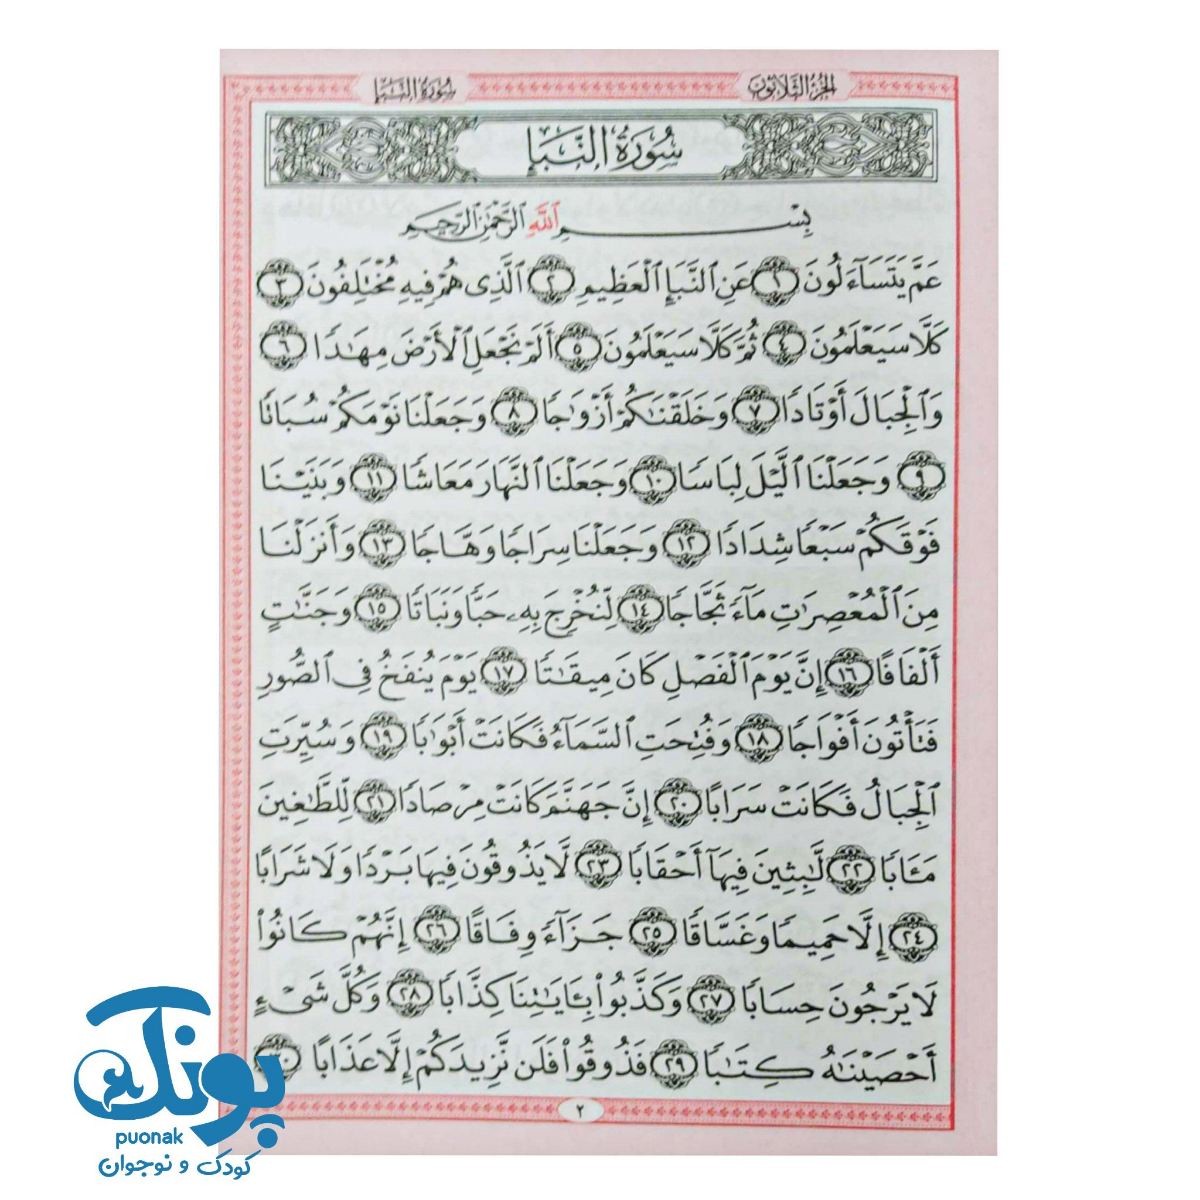 الجزء الثلاثون
سورة النبإ
سُورَةُ النَّبَإِ
بِسْمِ اللَّهِ الرَّحْمَٰنِ الرَّحِيمِ
عَمَّ يَتَسَآءَلُونَ ﴿١﴾ عَنِ ٱلنَّبَإِ ٱلْعَظِيمِ ﴿٢﴾ ٱلَّذِى هُمْ فِيهِ مُخْتَلِفُونَ ﴿٣﴾
كَلَّا سَيَعْلَمُونَ ﴿٤﴾ ثُمَّ كَلَّا سَيَعْلَمُونَ ﴿٥﴾ أَلَمْ نَجْعَلِ ٱلْأَرْضَ مِهَٰدًا ﴿٦﴾
وَٱلْجِبَالَ أَوْتَادًا ﴿٧﴾ وَخَلَقْنَٰكُمْ أَزْوَٰجًا ﴿٨﴾ وَجَعَلْنَا نَوْمَكُمْ سُبَاتًا
﴿٩﴾ وَجَعَلْنَا ٱلَّيْلَ لِبَاسًا ﴿١٠﴾ وَجَعَلْنَا ٱلنَّهَارَ مَعَاشًا ﴿١١﴾ وَبَنَيْنَا
فَوْقَكُمْ سَبْعًا شِدَادًا ﴿١٢﴾ وَجَعَلْنَا سِرَاجًا وَهَّاجًا ﴿١٣﴾ وَأَنزَلْنَا
مِنَ ٱلْمُعْصِرَٰتِ مَآءً ثَجَّاجًا ﴿١٤﴾ لِّنُخْرِجَ بِهِۦ حَبًّا وَنَبَاتًا ﴿١٥﴾ وَجَنَّٰتٍ
أَلْفَافًا ﴿١٦﴾ إِنَّ يَوْمَ ٱلْفَصْلِ كَانَ مِيقَٰتًا ﴿١٧﴾ يَوْمَ يُنفَخُ فِى ٱلصُّورِ
فَتَأْتُونَ أَفْوَاجًا ﴿١٨﴾ وَفُتِحَتِ ٱلسَّمَآءُ فَكَانَتْ أَبْوَٰبًا ﴿١٩﴾ وَسُيِّرَتِ
ٱلْجِبَالُ فَكَانَتْ سَرَابًا ﴿٢٠﴾ إِنَّ جَهَنَّمَ كَانَتْ مِرْصَادًا ﴿٢١﴾ لِّلطَّٰغِينَ
مَـَٔابًا ﴿٢٢﴾ لَّٰبِثِينَ فِيهَآ أَحْقَابًا ﴿٢٣﴾ لَّا يَذُوقُونَ فِيهَا بَرْدًا وَلَا شَرَابًا
﴿٢٤﴾ إِلَّا حَمِيمًا وَغَسَّاقًا ﴿٢٥﴾ جَزَآءً وِفَاقًا ﴿٢٦﴾ إِنَّهُمْ كَانُوا۟
لَا يَرْجُونَ حِسَابًا ﴿٢٧﴾ وَكَذَّبُوا۟ بِـَٔايَٰتِنَا كِذَّابًا ﴿٢٨﴾ وَكُلَّ شَىْءٍ
أَحْصَيْنَٰهُ كِتَٰبًا ﴿٢٩﴾ فَذُوقُوا۟ فَلَن نَّزِيدَكُمْ إِلَّا عَذَابًا ﴿٣٠﴾
٢
پونک
puonak
کودک و نوجوان